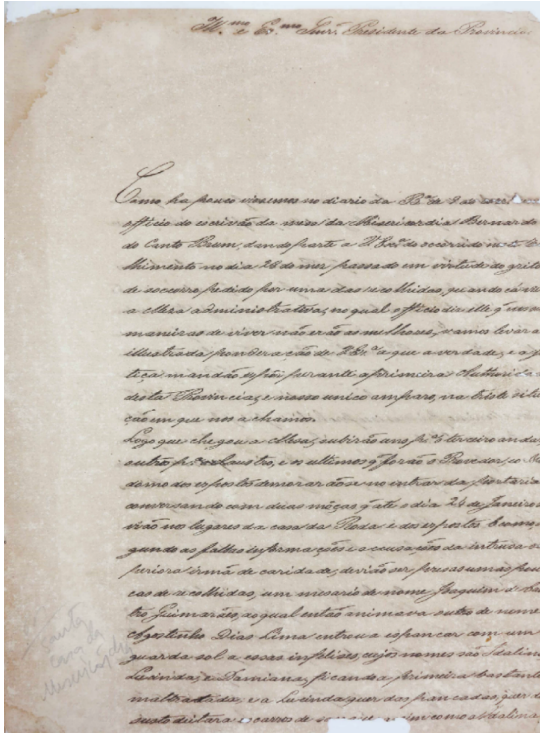 Ill.mo e Ex.mo Snr. Presidente da Provincia
Como ha pouco vissemos no diario da Ba.a de 9 do corre
officio do escrivão da mesa da Misericordia Bernardo
do Canto Brum, dando parte a V Ex.a do ocorrido n
lhimento no dia 26 do mez passado em virtude do grito
de socorro pedido por uma das recolhidas, quando cá v
a Mesa administrativa, no qual officio diz elle q nossa
maneiras de viver não erão as melhores, vamos levar a
illustrada ponderação de V Ex.a o que a verdade, e a ju
tiça mandão depôr perante a primeira Authorida
desta Provincia, e nosso unico amparo, na triste situa
ção em que nos achamos.
Logo que chegou a Mesa, subirão uns p.a o terceiro anda
outros p.a o Claustro, e os ultimos q forão o Provedor, e o
domo dos expostos demorarão-se no entrar da portaria
conversando com duas moças q até o dia 24 de Janeiro
virão nos lugares da casa da Roda e dos expostos, e come
gundo as falsas informações e accusações da intrusa su
periora irmã de caridade, devião ser presas umas pou
cas de recolhidas, um mesario de nome Joaquim de Cas
tro Guimarães, ao qual então animava outro de nome
Agostinho Dias Lima entrou a espancar com um
guarda sol a essas infelises, cujos nomes são Idalina
Lucinda, e Damiana, ficando a primeira bastante
maltractada, e a Lucinda quer das pancadas, quer do
susto deitara
Santa
Casa da
Misericórdia